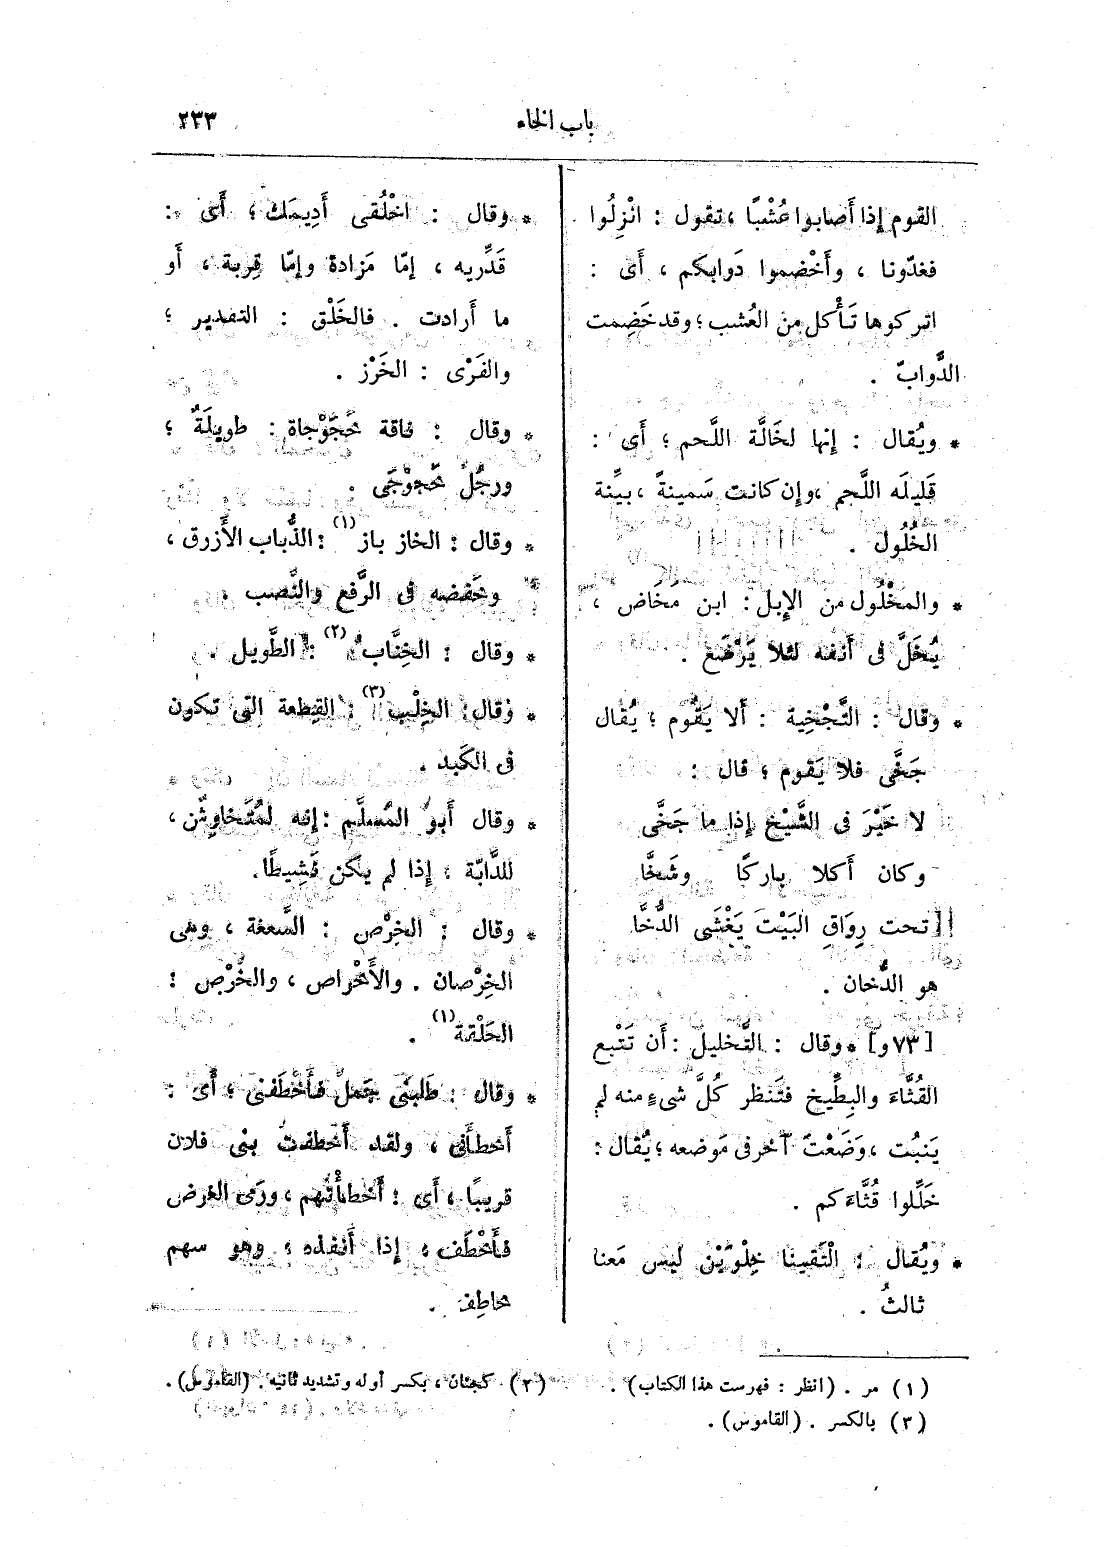 باب الخاء
٢٣٣
القوم إذا أَصابوا عُشْبًا ، تقول : انْزِلُوا
فغدّونا ، وأَخْضموا دَوابكم ، أَى :
اتركوها تَأْكل منَ العُشب ؛ وقد خَضِمت
الدَّوابّ .
* ويُقال : إنها لخَالَّة اللَّحم ؛ أَى :
قَليلَه اللَّحم ، وإن كانت سَمينةً ، بيِّنة
الخُلُول .
* والمخْلُول من الإِبل : ابن مَخَاض ،
يُخَلَّ فى أَنفه لئلا يَرْضَع .
* وقال : التَّجْخية : أَلا يَقُوم ؛ يُقال
جَخَّى فلا يَقوم ؛ قال :
لا خَيْرَ فى الشَّيْخ إذا ما جَخَّى
وكان أَكلا باركًا وشَخَّا
تحت رِوَاقِ البَيْتَ يَغْشَى الدُّخَّا
هو الدُّخان .
[٧٣و] * وقال : التَّخليلُ : أَن تَتْبع
القُثَّاءَ والبِطِّيخ فتَنظر كُلَّ شىءٍ منه لم
يَنبُت ، وَضَعْتَ آخر فى مَوضعه ؛ يُقال :
خَلِّلوا قُثَّاءَكم .
* ويُقال : الْتَقينا خِلْوَيْن ليس مَعنا
ثالثُ .
* وقال : اخْلُقى أَدِيمَك ؛ أَى :
قَدِّريه ، إمّا مَزادة وإمّا قِربة ، أَو
ما أَرادت . فالخَلْق : التقدير ؛
والفَرْى : الخَرْز .
* وقال : ناقة خَجَوْجاة : طويلَةٌ ؛
ورجُلٌ خَجوْجًى .
* وقال : الخاز باز (١) : الذُّباب الأَزرق ،
وخَفضه فى الرَّفع والنَّصب .
* وقال : الخِنَّاب (٢) : الطَّويل .
* وقال : الخِلْب (٣) : القِطعة التى تكون
فى الكَبد .
* وقال أَبو المُسلَّم : إنه لمُتَخاوِشٌ ،
للدَّابّة ؛ إذا لم يكن نَشِيطًا .
* وقال : الخِرْص : السَّعفة ، وهى
الخِرْصان . والأَخْراص ، والخُرْص :
الحَلْقة (١) .
* وقال : طَلبنى جَملٌ فأَخْطَفنى ؛ أَى :
أَخطأَنى ، ولقد أَخطفتُ بنى فلان
قريبًا ، أَى : أَخطأْتُهم ، ورَمى الغرض
فأَخْطَف ، إذا أَنفذه ؛ وهو سهم
خاطِف .
(١) مر . (انظر : فهرست هذا الكتاب) .
(٢) كجنان ، بكسر أوله وتشديد ثانيه . (القاموس) .
(٣) بالكسر . (القاموس) .